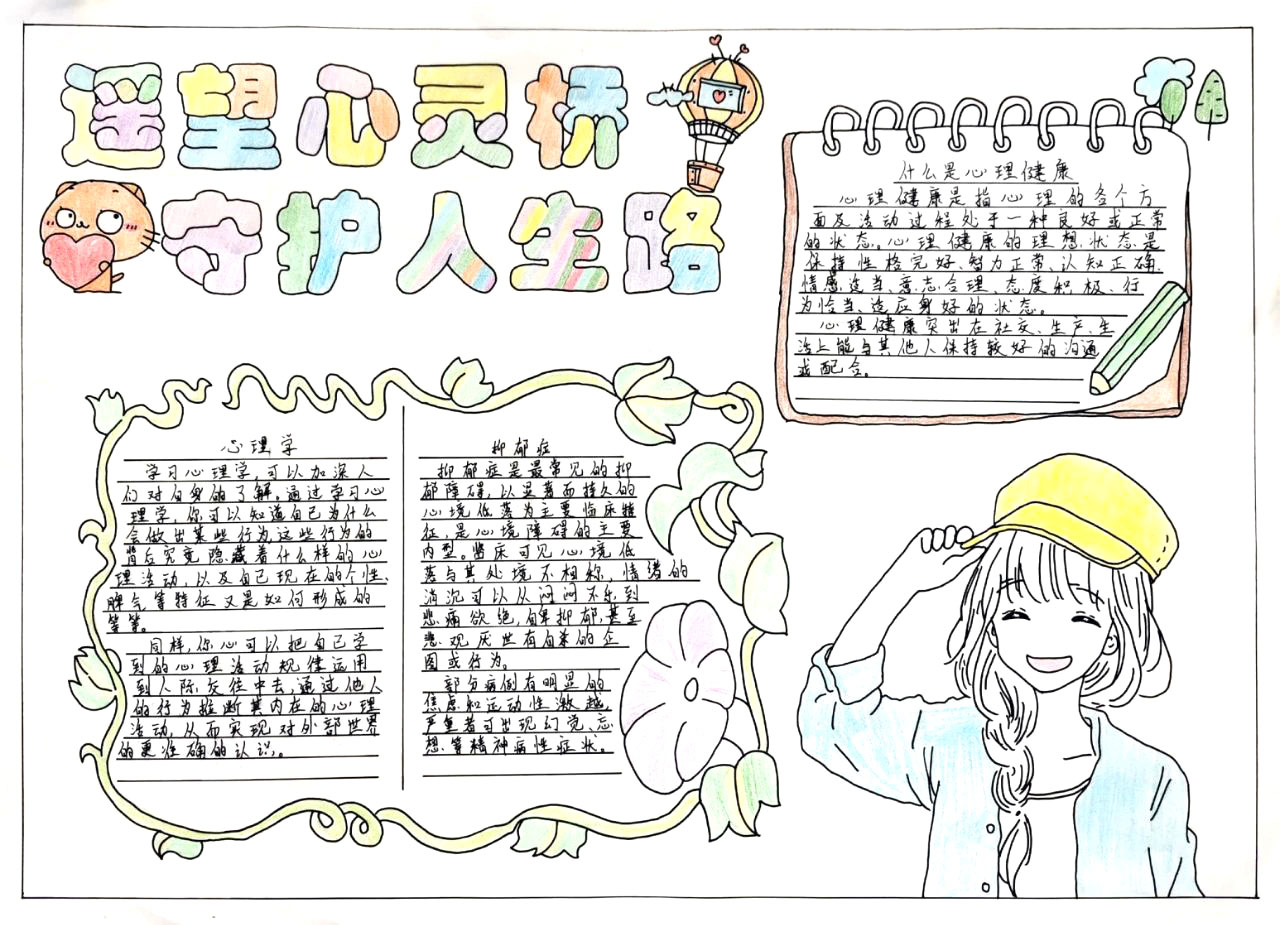 遥望心灵桥
守护人生路
什么是心理健康
心理健康是指心理的各个方
面及活动过程处于一种良好或正常
的状态。心理健康的理想状态是
保持性格完好、智力正常、认知正确、
情感适当、意志合理、态度积极、行
为恰当、适应身好的状态。
心理健康突出在社交、生产、生
活上能与其他人保持较好的沟通
或配合。
心理学
学习心理学,可以加深人
们对自身的了解。通过学习心
理学,你可以知道自己为什么
会做出某些行为,这些行为的
背后究竟隐藏着什么样的心
理活动,以及自己现在的个性、
脾气等特征又是如何形成的
等等。
同样,你心可以把自己学
到的心理活动规律运用
到人际交往中去,通过他人
的行为推断其内在的心理
活动,从而实现对外部世界
的更准确的认识。
抑郁症
抑郁症是最常见的抑
郁障碍,以显著而持久的
心境低落为主要临床特
征,是心境障碍的主要
内型。临床可见心境低
落与其处境不相称,情绪的
消沉可以从闷闷不乐到
悲痛欲绝,自卑抑郁,甚至
悲观厌世有自杀的企
图或行为。
部分病例有明显的
焦虑和运动性激越,
严重者可出现幻觉、妄
想等精神病性症状。